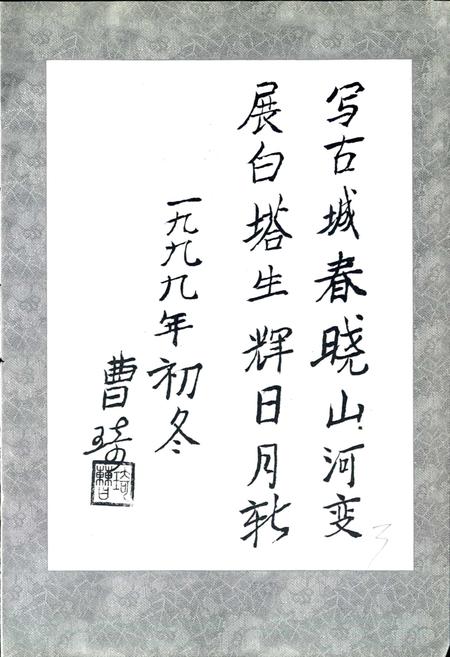 写古城春晓山河变
展白塔生辉日月新
一九九九年初冬
曹琦
3